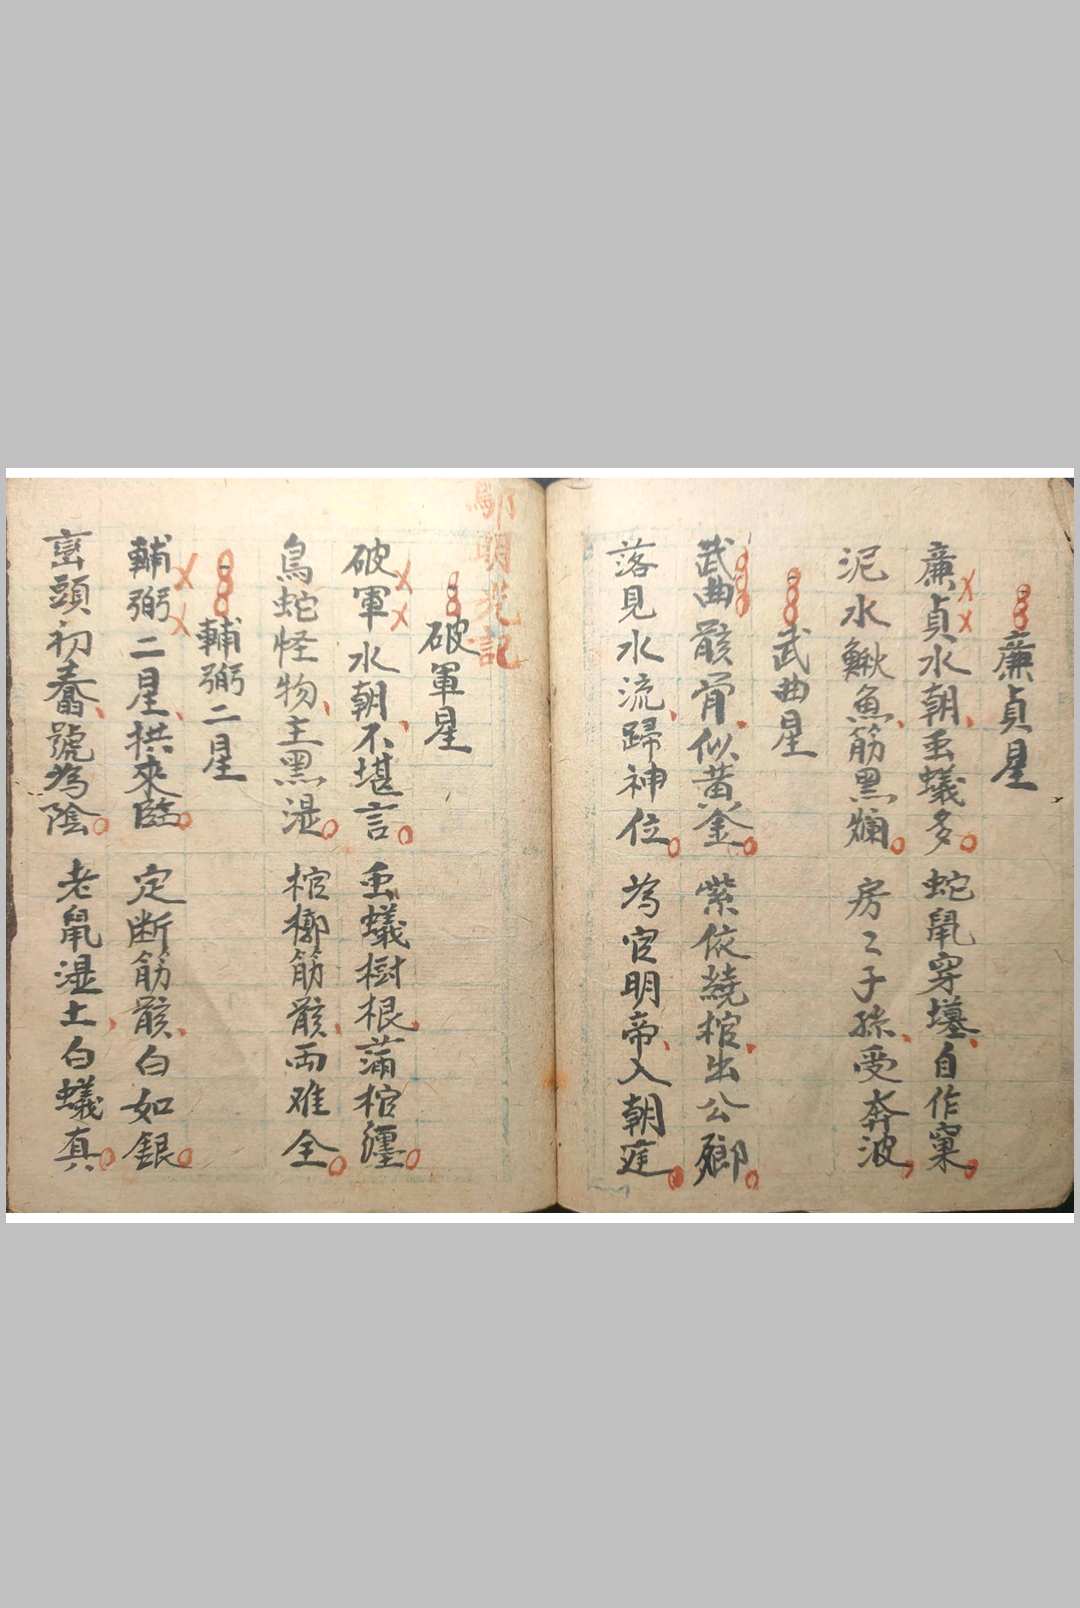 廉貞星
廉貞水朝虫蟻多 蛇鼠穿墓自作窠
泥水鰍魚筋黑爛 房〻子孫受奔波
武曲星
武曲骸骨似黃金 紫依繞棺出公卿
落見水流歸神位 為官明帝入朝廷
明 記
破軍星
破軍水朝不堪言 虫蟻樹根滿棺纏
鳥蛇怪物主黑湿 棺槨筋骸両难全
輔弼二星
輔弼二星拱來臨 定断筋骸白如銀
巒頭初 號為陰 老鼠湿土白蟻真